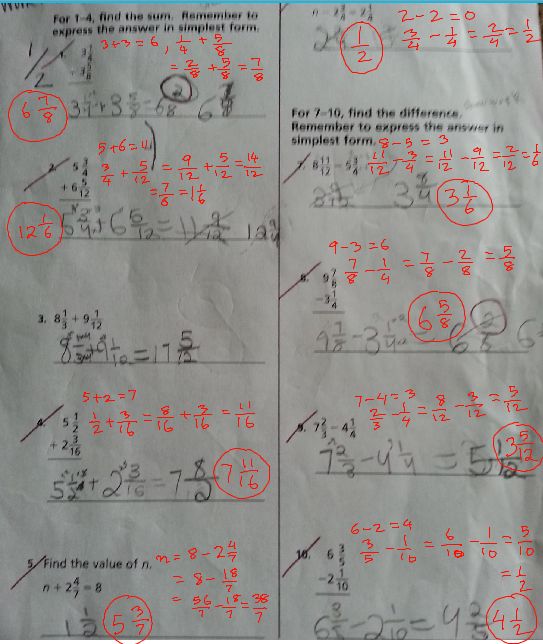 For 1-4, find the sum. Remember to
express the answer in simplest form.
1/2
1. 3 1/4
+ 3 5/8
3+3=6, 1/4 + 5/8
= 2/8 + 5/8 = 7/8
6 7/8
3 1/4 + 3 5/8 = 6 2/8 6 7/8
5+6=11
2. 5 3/4
+ 6 5/12
3/4 + 5/12 = 9/12 + 5/12 = 14/12
= 7/6 = 1 1/6
12 1/6
5 3/4 + 6 5/12 = 11 9/12
3. 8 1/3 + 9 1/12
= 17 5/12
5+2=7
4. 5 1/2
+ 2 3/16
1/2 + 3/16 = 8/16 + 3/16 = 11/16
5 1/2 + 2 3/16 = 7 8/12
7 11/16
5. Find the value of n.
n + 2 4/7 = 8
n = 8 - 2 4/7
= 8 - 18/7
= 56/7 - 18/7 = 38/7
1 1/2
5 3/7
2-2=0
3/4 - 1/4 = 2/4 = 1/2
1/2
For 7-10, find the difference.
Remember to express the answer in
simplest form.
8-5=3
7. 8 11/12 - 5 3/4
11/12 - 3/4 = 11/12 - 9/12 = 2/12 = 1/6
3 1/6
9-3=6
8. 9 7/8
- 3 1/4
7/8 - 1/4 = 7/8 - 2/8 = 5/8
6 5/8
9 7/8 - 3 1/4
7-4=3
9. 7 2/3 - 4 1/4
2/3 - 1/4 = 8/12 - 3/12 = 5/12
7 2/3 - 4 1/4 = 5
3 5/12
6-2=4
10. 6 3/5
- 2 1/10
3/5 - 1/10 = 6/10 - 1/10 = 5/10
= 1/2
6 3/5 - 2 1/10 = 4
4 1/2